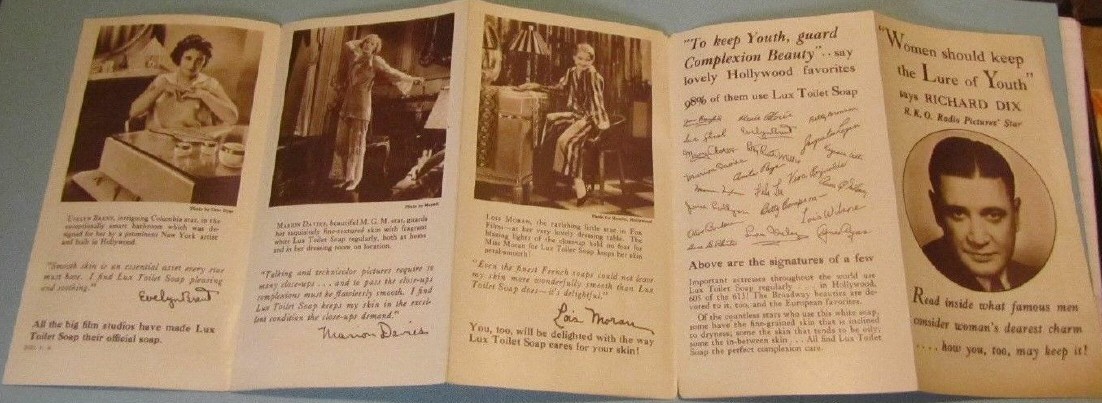 Photo by
EVELYN BRENT, intriguing Columbia star, in the
exceptionally smart bathroom which was de-
signed for her by a prominent New York artist
and built in Hollywood.
"Smooth skin is an essential asset every star
must have. I find Lux Toilet Soap pleasing
and soothing."
Evelyn Brent
All the big film studios have made Lux
Toilet Soap their official soap.
Photo by
MARION DAVIES, beautiful M. G. M. star, guards
her exquisitely fine-textured skin with fragrant
white Lux Toilet Soap regularly, both at home
and in her dressing room on location.
"Talking and technicolor pictures require so
many close-ups . . . and to pass the close-ups
complexions must be flawlessly smooth. I find
Lux Toilet Soap keeps my skin in the excel-
lent condition the close-ups demand."
Marion Davies
Photo by Hollywood
LOIS MORAN, the ravishing little star in Fox
Films—at her very lovely dressing table. The
blazing lights of the close-up hold no fear for
Miss Moran for Lux Toilet Soap keeps her skin
"Even the finest French soaps could not leave
my skin more wonderfully smooth than Lux
Toilet Soap does—it's delightful."
Lois Moran
You, too, will be delighted with the way
Lux Toilet Soap cares for your skin!
"To keep Youth, guard
Complexion Beauty" . . say
lovely Hollywood favorites
98% of them use Lux Toilet Soap
Evelyn Brent
Marion Davies
Anita Page
Betty Compson
Lois Wilson
Above are the signatures of a few
Important actresses throughout the world use
Lux Toilet Soap regularly . . . in Hollywood,
605 of the 613! The Broadway beauties are de-
voted to it, too, and the European favorites.
Of the countless stars who use this white soap,
some have the fine-grained skin that is inclined
to dryness; some the skin that tends to be oily;
some the in-between skin . . . All find Lux Toilet
Soap the perfect complexion care.
"Women should keep
the Lure of Youth"
says RICHARD DIX
R. K. O. Radio Pictures' Star
Read inside what famous men
consider woman's dearest charm
. . . . how you, too, may keep it!